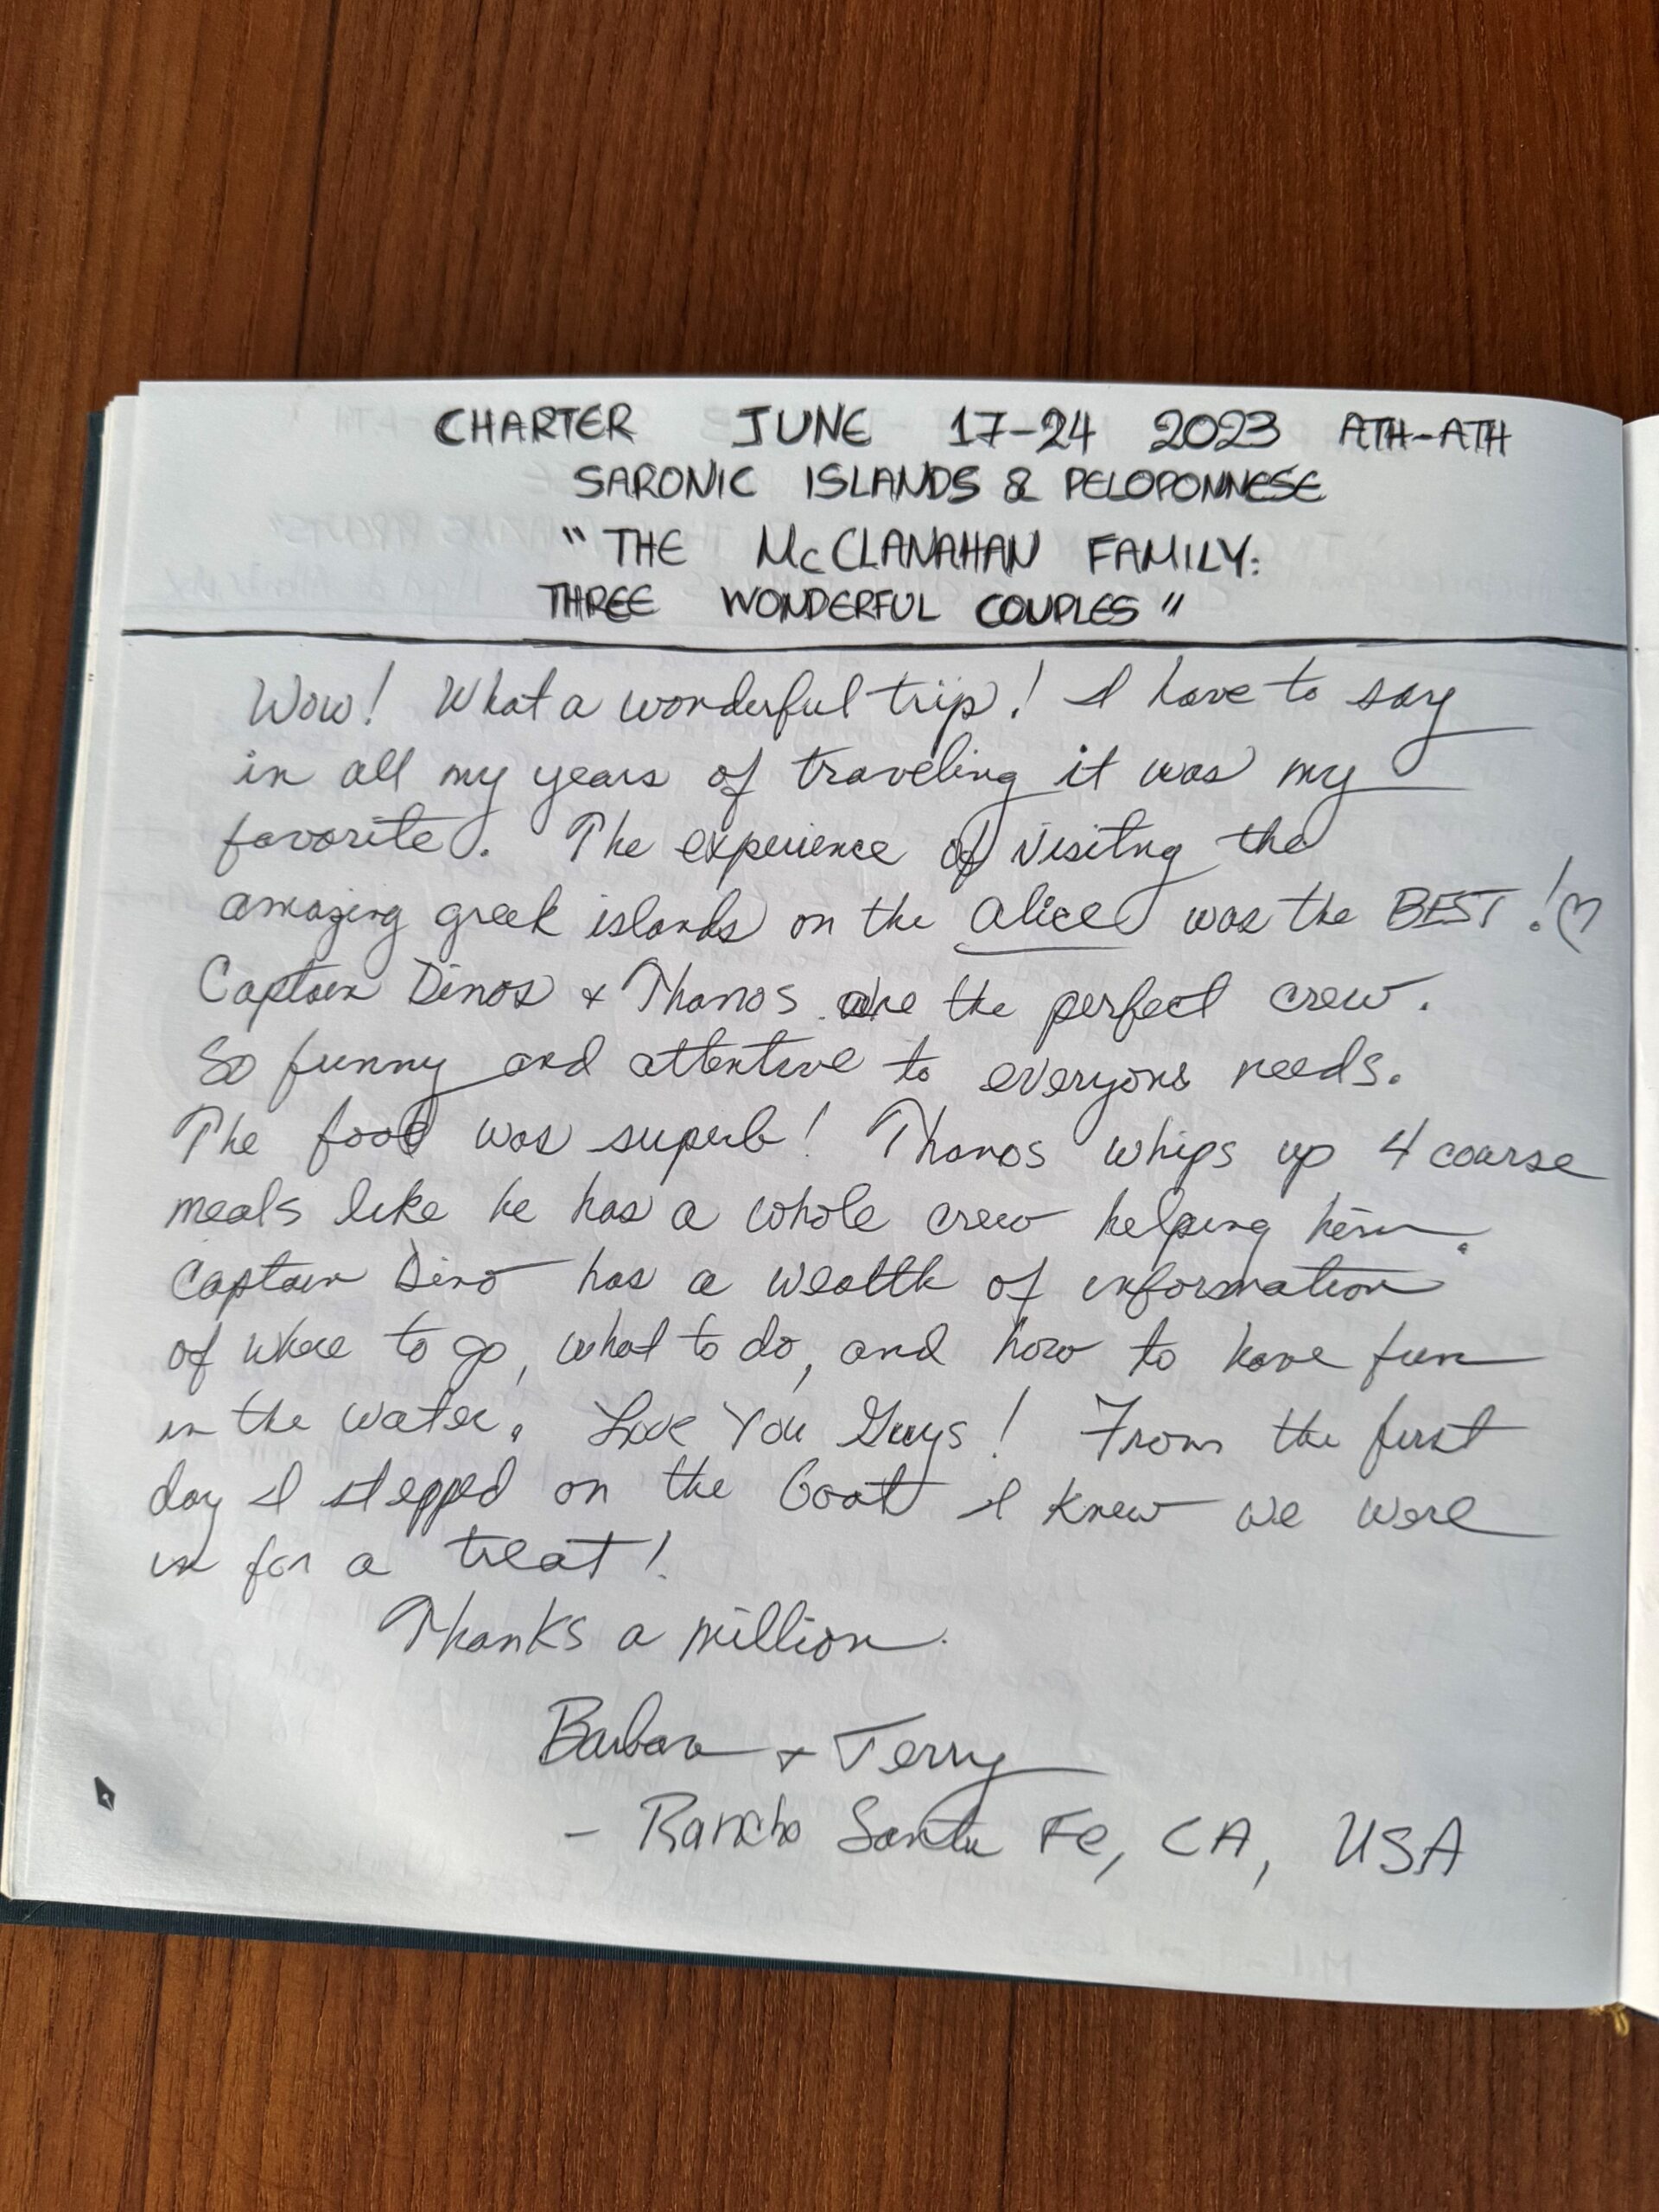 CHARTER JUNE 17-24 2023 ATH-ATH
SARONIC ISLANDS & PELOPONNESE
"THE McCLANAHAN FAMILY:
THREE WONDERFUL COUPLES"
Wow! What a wonderful trip! I have to say
in all my years of traveling it was my
favorite. The experience of visitng the
amazing greek islands on the Alice was the BEST!♡
Captain Dinos & Thanos are the perfect crew.
So funny and attentive to everyone needs.
The food was superb! Thanos whips up 4 coarse
meals like he has a whole crew helping him.
Captain Dino has a wealth of information
of where to go, what to do, and how to have fun
in the water. Love You Guys! From the first
day I stepped on the boat I knew we were
in for a treat!
Thanks a million.
Barbara & Terry
- Rancho Santa Fe, CA, USA